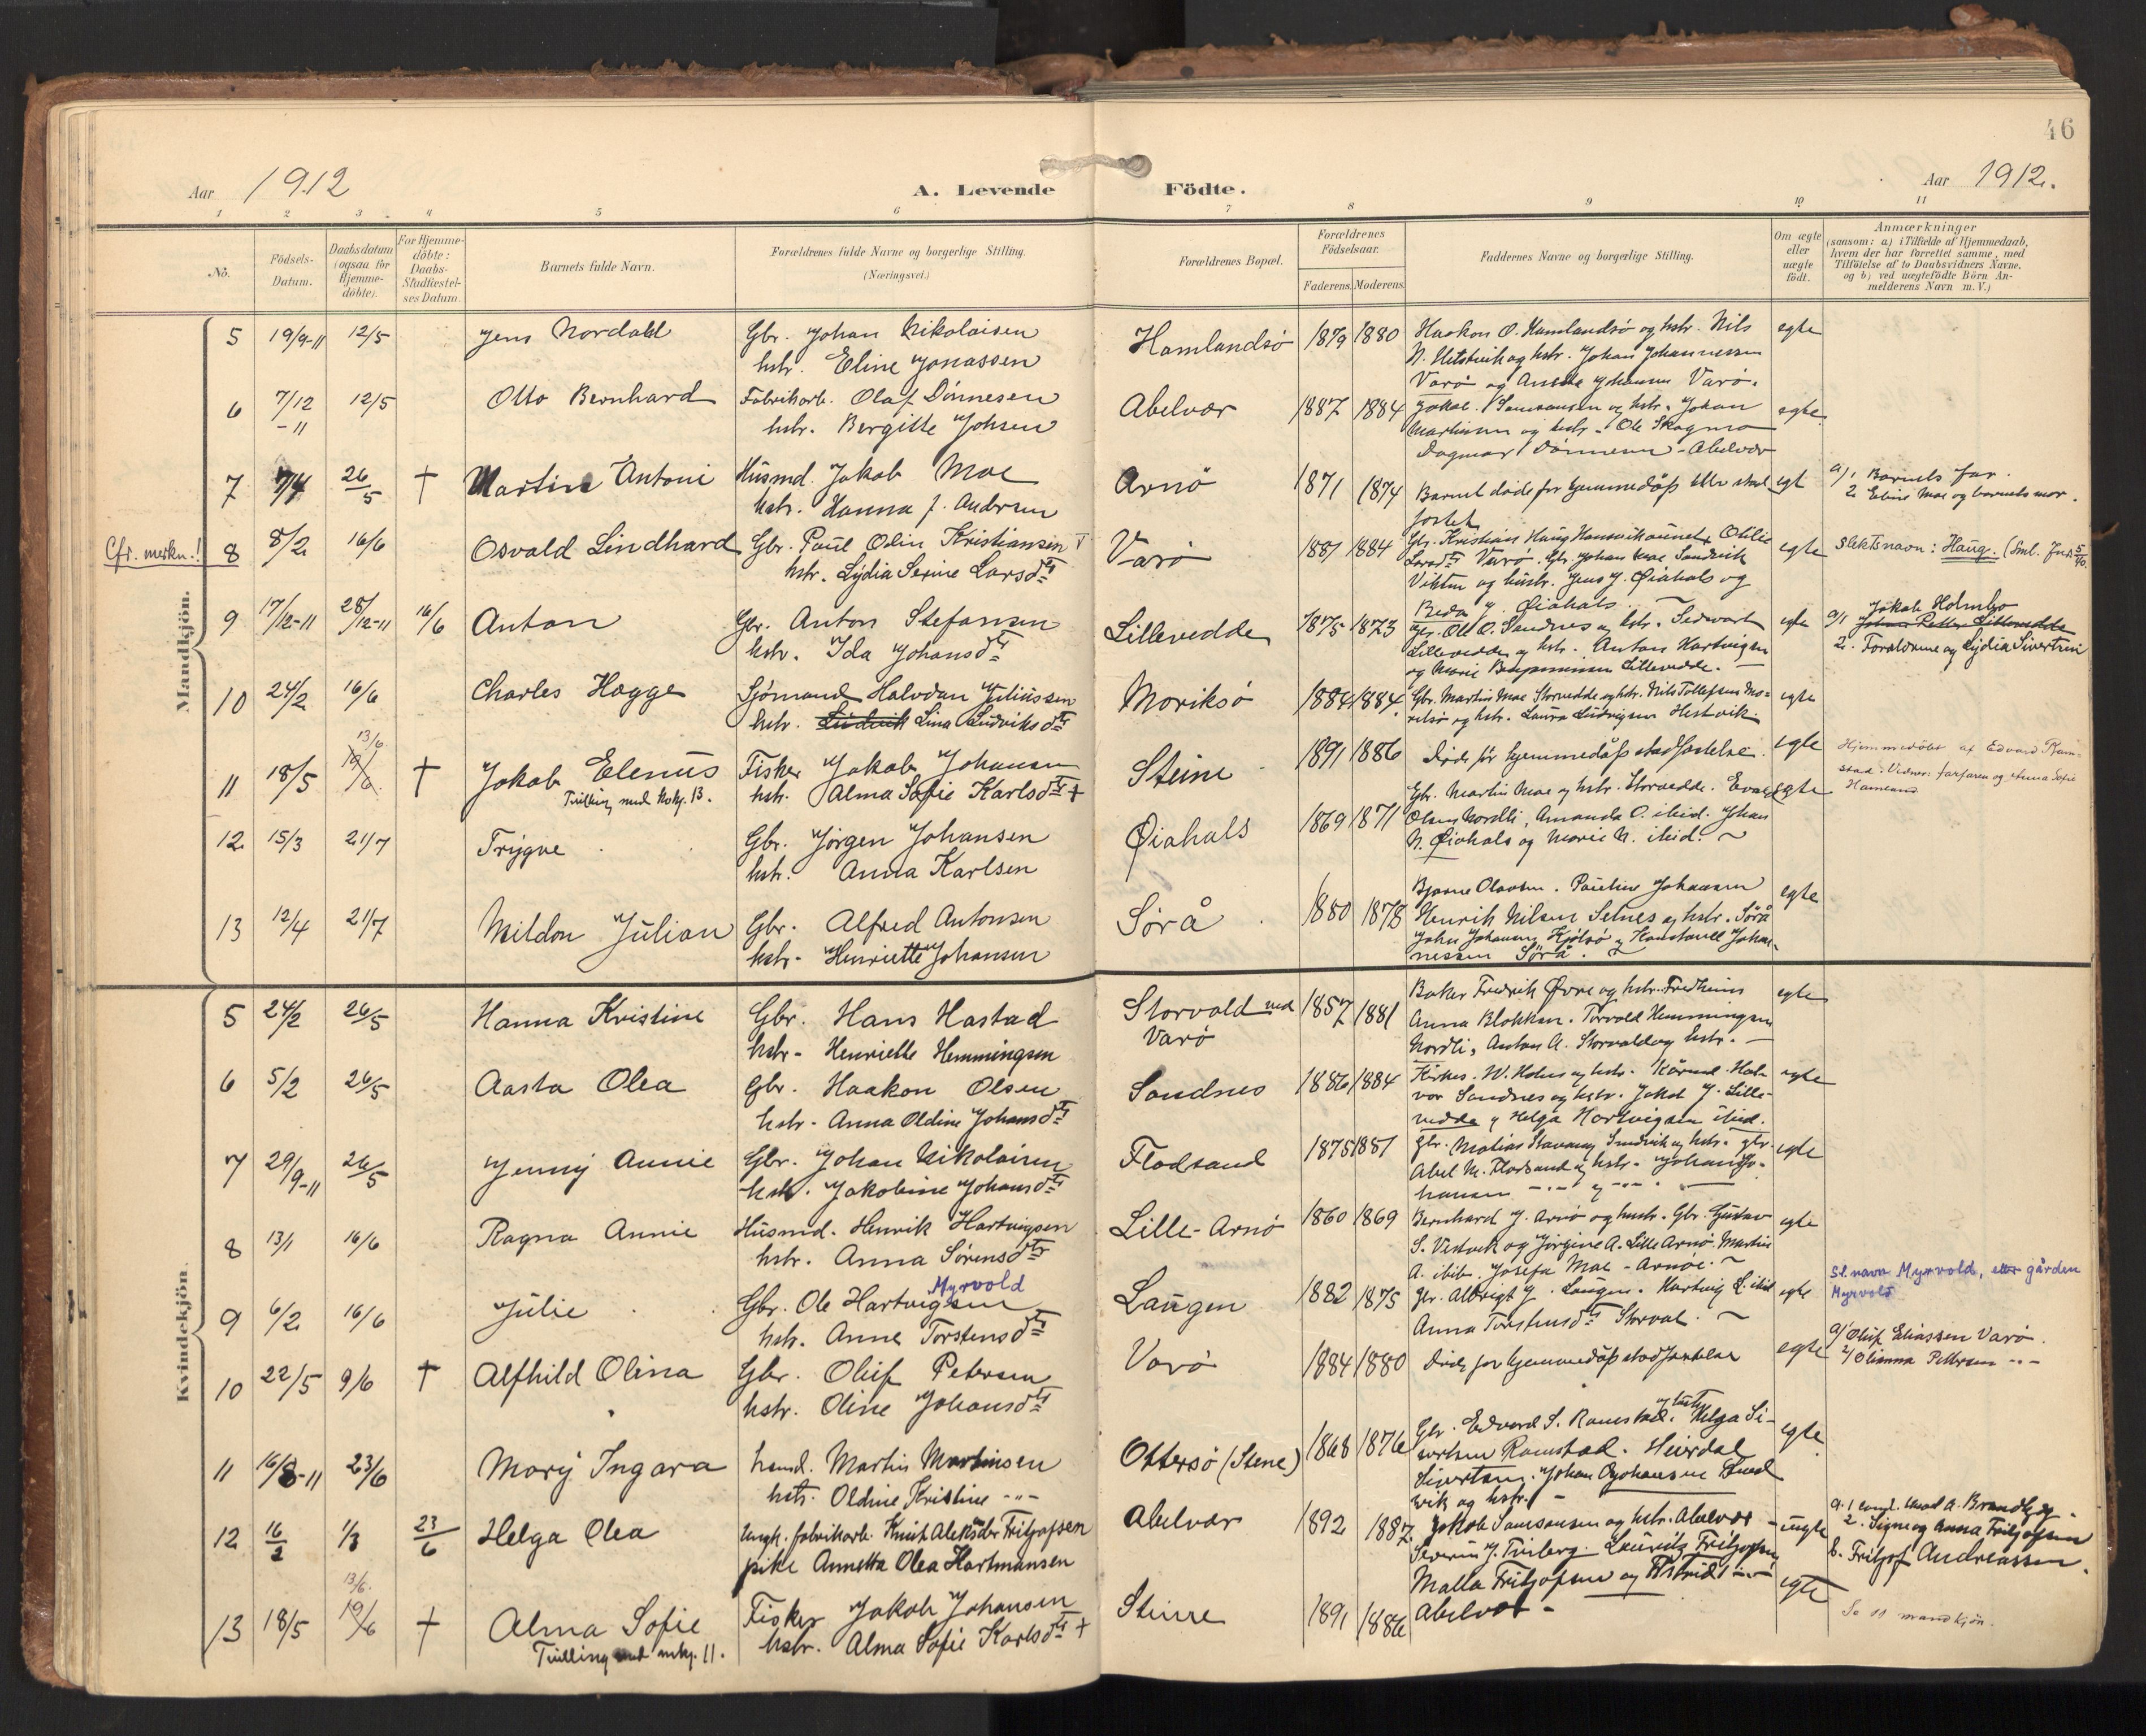 46
Aar 1912
A. Levende Födte.
Aar 1912.
1 2 3 4 5 6 7 8 9 10 11
No.
Födsels-
Datum.
Daabsdatum
(ogsaa for
Hjemme-
döbte).
For Hjemme-
döbte:
Daabs-
Stadfæstel-
ses Datum.
Barnets fulde Navn.
Forældrenes fulde Navne og borgerlige Stilling.
(Næringsvei.)
Forældrenes Bopæl.
Forældrenes
Födselsaar.
Faderens. Moderens.
Faddernes Navne og borgerlige Stilling.
Om ægte
eller
uægte
födt.
Anmærkninger
(saasom: a) i Tilfælde af Hjemmedaab,
hvem der har forrettet samme, med
Tilföielse af to Daabsvidners Navne,
og b) ved uegtefödte Börn An-
melderens Navn m. V.)
Mandkjön.
5 19/9-11 12/5 Jens Nordahl Gbr. Johan Nikolaisen
hstr. Eline Jonassen
Hamlandsö 1879 1880 Haakon O. Hamlandsö og hstr. Nils
N. og hstr. Johan Johannessen
Varö og Johansen Varö.
egte
6 7/12-11 12/5 Otto Bernhard Fabrikarb. Olaf Dönnesen
hstr. Bergitte Johsen
Abelvær 1887 1884 Jakob Samsonsen og hstr. Johan
Martinsen og hstr. Ole Skogmo
Dagmar Dönnesen - Abelvær
egte
7 7/4 26/5 † Martin Antoni Husmd. Jakob Moe
hstr. Hanna f. Andersen
Arnö 1871 1874 Barnet döde for hjemmedåps blev stad-
festet
egt
a/1 Barnets far.
2. Moe og barnets mor.
Cfr. merkn.!
8 8/2 16/6 Osvald Lindhard Gbr. Paul Odin Kristiansen
hstr. Lydia Serine Larsdtr
Varö 1881 1884 Gbr. Kristian Haug Otilie
Larsdtr Varö. Gbr. Johan Moe Sandvik
og hustr. Jens J. Öiahals og
Beda J. Öiahals
egte
Slektsnavn: Haug. (Sml. Jnr. 5/40.
9 17/12-11 28/12-11 16/6 Anton Gbr. Anton Stefansen
hstr. Ida Johansdtr
Lillevedde 1875 1873 Gbr. Ole O. Sandnes og hstr. Sedvart
Lillevedde og hstr. Anton Hartvigsen
og Marie Benjaminsen Lillevedde.
egte
a/1 Jakob Holmbo
2. Forældrene og Lydia Sivertsen
10 24/2 16/6 Charles Hagge Sjömand Halvdan Juliussen
hstr. Lina Ludviksdtr
Moriksö 1884 1884 Gbr. Martin Moe Storvedde og hstr. Nils Tollefsen Mo-
riksö og hstr. Laura Ludvigsen Hestvik
egte
11 18/5 13/6 19/6 † Jakob Elenus
Tvilling med kvkj. 13.
Fisker Jakob Johansen
hstr. Alma Sofie Karlsdtr +
Steine 1891 1886 Döde för hjemmedåps stadfestelse.
egte
Hjemmedöbt af Edvard Ram-
stad. Vidner: farfaren og Anna Sofie
Hamland
12 15/3 21/7 Trygve Gbr. Jörgen Johansen
hstr. Anna Karlsen
Öiahals 1869 1871 Gbr. Martin Moe og hstr. Storvedde. Evald
Olsen Nordli, Amanda O. ibid. Johan
N. Öiahals og Marie N. ibid.
egte
13 12/4 21/7 Meildon Julian Gbr. Alfred Antonsen
hstr. Henriette Johansen
Sörå 1880 1878 Bjarne Olavsen. Pauline Johansen
Henrik Nilsen Setnes og hstr. Sörå
John Johansen Kjölsö og Johan-
nessen Sörå.
egte
Kvindekjön.
5 24/2 26/5 Hanna Kristine Gbr. Hans Hastad
hstr. Henriette Hemmingsen
Storvold ved
Varö
1857 1881 Baker Fredrik Övre og hstr. Fredheim
Anna Blokken. Torvald Hemmingsen
Nordli, Anton A. Storvold og hstr.
egte
6 5/2 26/5 Aasta Olea Gbr. Haakon Olsen
hstr. Anna Oldine Johansdtr
Sandnes 1886 1884 W. Holm og hstr. Hal-
vor Sandnes og hstr. Jakob J. Lille-
vedde og Helga Hartvigsen ibid.
egte
7 29/9-11 26/5 Jenny Annie Gbr. Johan Nikolaisen
hstr. Jakobine Johansdtr
Flodsand 1875 1881 Gbr. Matias Stavang Sandvik og hstr. Gbr.
Abel M. Flodsand og hstr. Johan Jo-
hansen
egte
8 13/1 16/6 Ragna Annie Husmd. Henrik Hartvigsen
hstr. Anna Sörensdtr
Lille-Arnö 1860 1869 Bernhard J. Arnö og hustr. Gbr. Gustav
S. Vestvik og Jörgine A. Lille Arnö. Martin
A. ibid. Josefa Moe - Arnöe.
egte
9 6/2 16/6 Julie Gbr. Ole Hartvigsen Myrvold
hstr. Anne Torstensdtr
Laugen 1882 1875 Gbr. Albrigt J. Laugen. Hartvig L. ibid
Anna Torstensdtr Storval.
egte
Sl.navn Myrvold, etter gården
Myrvold
10 22/5 9/6 † Alfhild Olina Gbr. Oluf Petersen
hstr. Oline Johansdtr
Varö 1884 1880 Död for hjemmedåps stadfestelse
egte
a/1 Oluf Eliassen Varö.
2/ Olianna Pettersen -"-
11 16/8-11 23/6 Mary Ingara Martin Martinsen
hstr. Oldine Kristine -"-
Ottersö (Stene) 1868 1876 Gbr. Edvard S. Ramstad og hustr. Helga Si-
vertsen Ramstad. Heirdal
Sivertsen. Johan
vik og hstr.
egte
12 16/2 1/3 23/6 Helga Olea Ungk. fabrikarb. Knut Aleksander Fritjofsen
pike Annetta Olea Hartmansen
Abelvær 1892 1887 Jakob Samsonsen og hstr. Abelvær
Severin J. Lauritz Fritjofsen
Malla Fritjofsen og Astrid -"-
Abelvær
uegte
a. 1 A. Brandtzæg.
2. Signe og Anna Fritjofsen
b. Fritjof Andreassen.
13 18/5 13/6. 19/6 † Alma Sofie
Tvilling med mkj. 11.
Fisker Jakob Johansen
hstr. Alma Sofie Karlsdtr +
Steine 1891 1886
egte
Se 11 mandkjön.